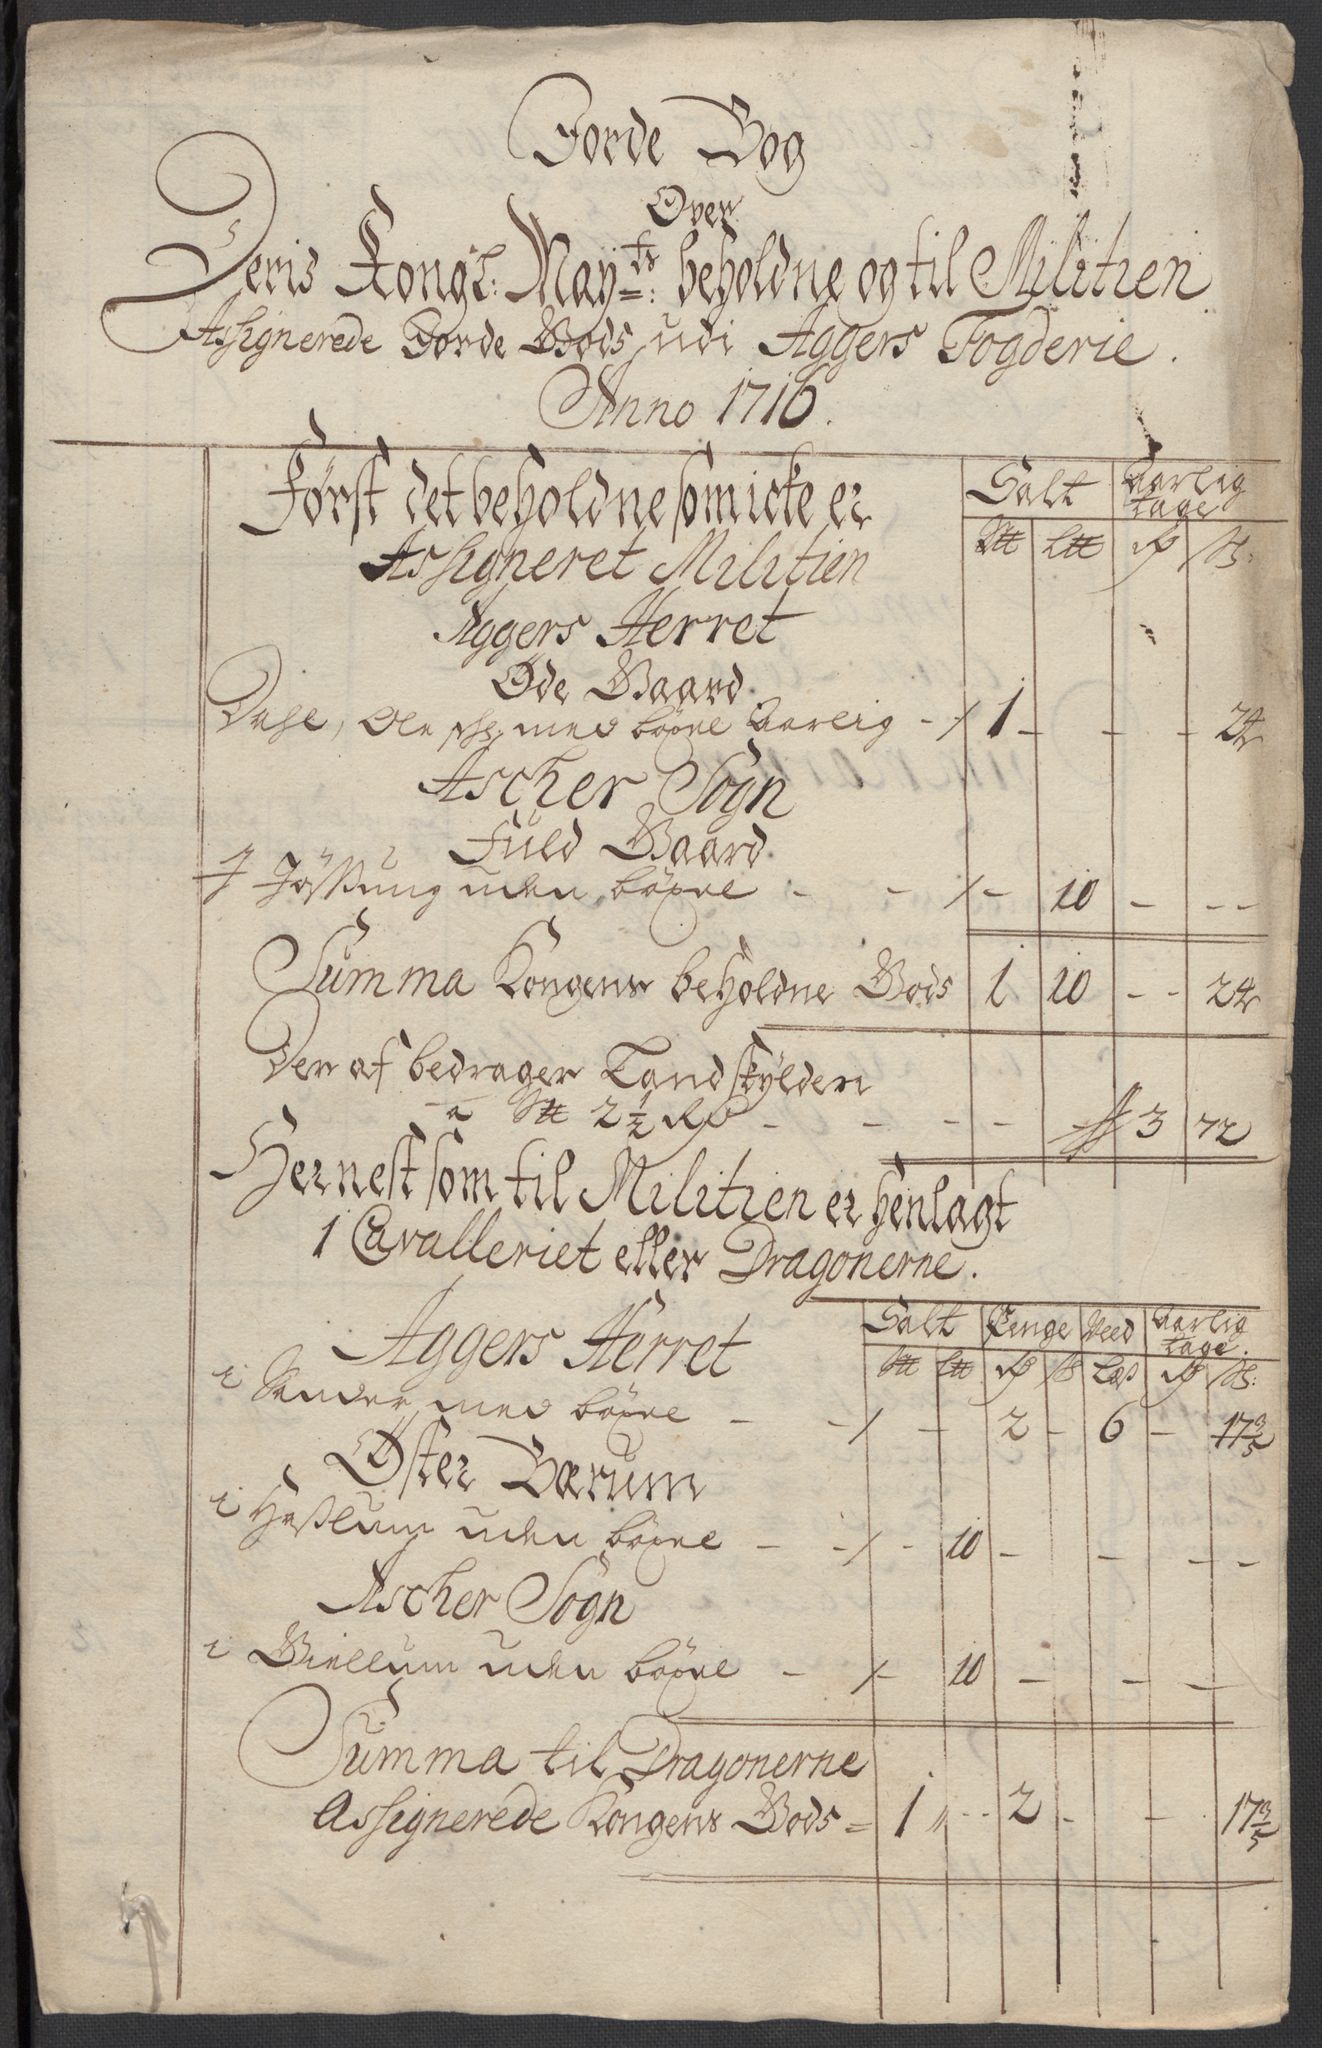 Jorde Bog
Over
Deris Kongl: Mayts: beholdne og til Militien
Assignerede Jorde Gods udi Aggers Fogderie.
Anno 1716.
Først det beholdne som icke er
Salt Aarlig tage
Assigneret Militien
Aggers Herret
Øde Gaard.
Dahl, Ole med böxel Aarlig - 1 - - - 24
Ascher Sogn
Fuld Gaard.
J uden böxel - - - 10 - - -
Summa Kongens beholdne Gods 1 10 - - 24
Der af bedrager Landskylden
a 2 1/2 - - - - 3 72
Hernest som til Militien er henlagt
1 Cavalleriet eller Dragonerne.
Salt Penge Veed Aarlig tage.
Aggers Herret
i med böxel - - - 2 - 6 - 17 3/5
Øster Bærum
i Haßlum uden böxel - - - 10 - - - -
Ascher Sogn
i Giellum uden böxel - - 10 - - -
Summa til Dragonerne
Assignerede Kongens Gods = 1 - - 2 - - 17 3/5